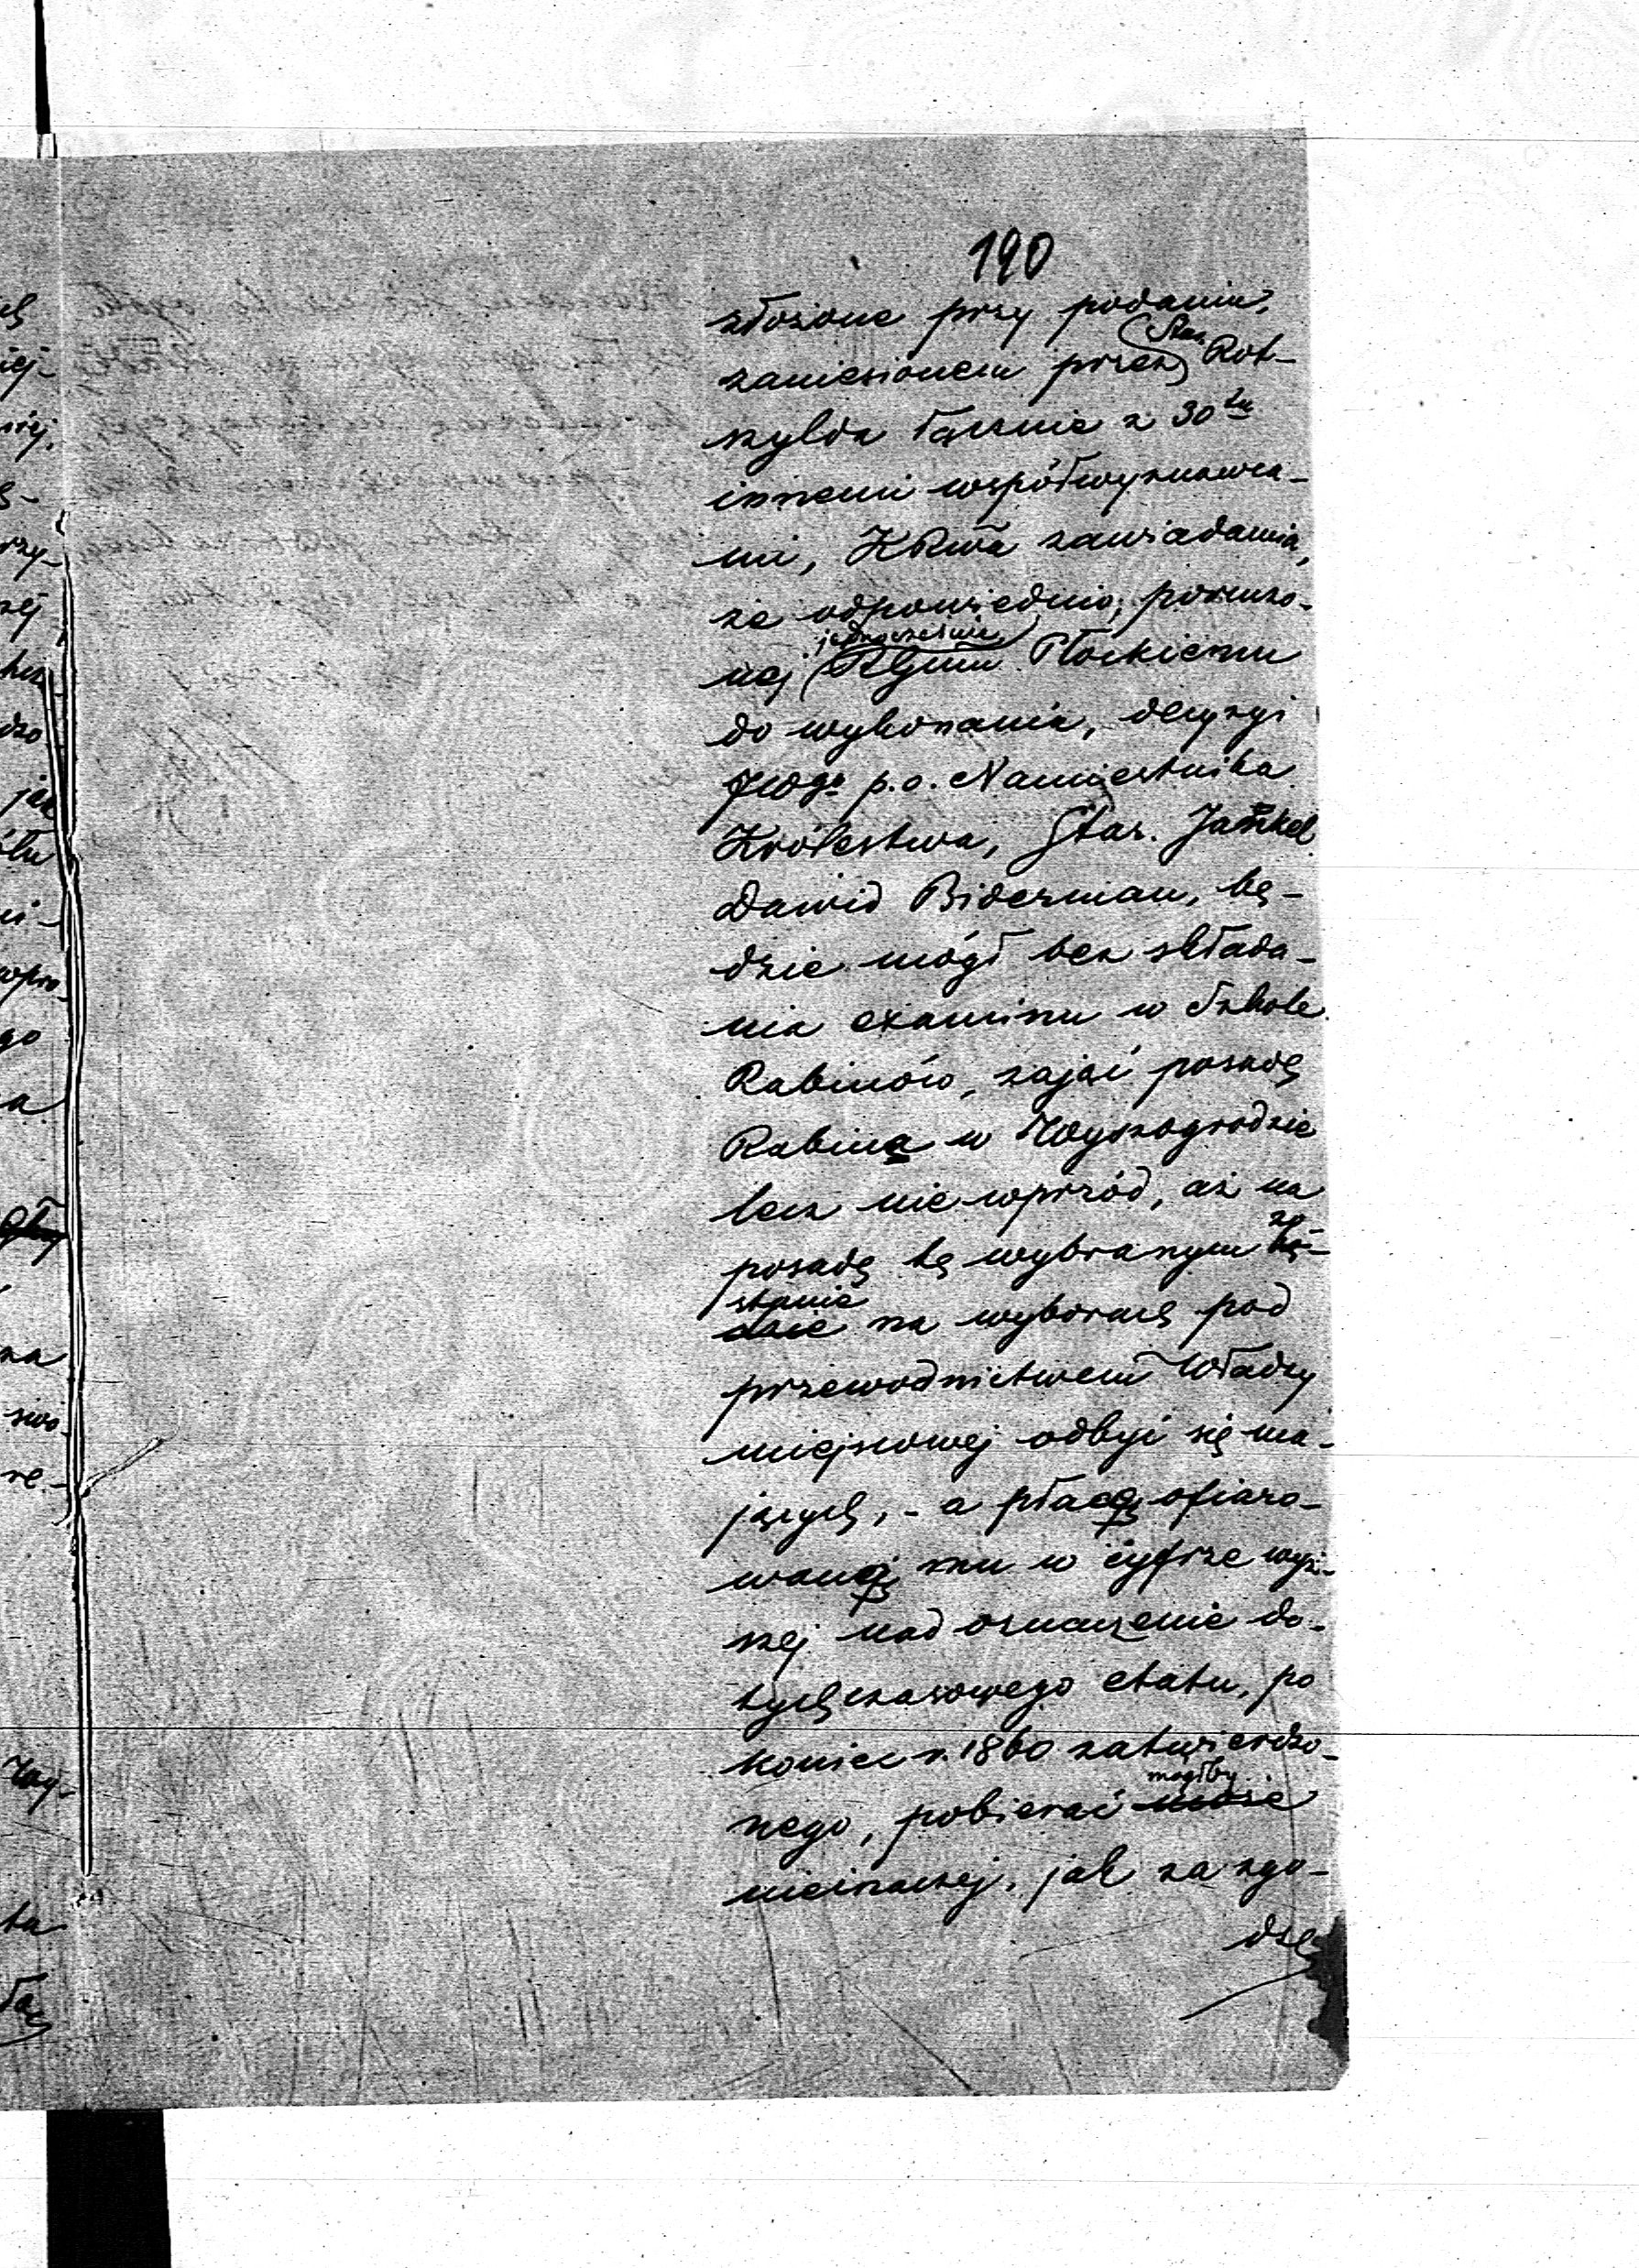 190
złożone przy podaniu,
zaniesionem przez Star. Rot-
szylda łącznie z 30tu
innemi współwyznawca-
mi, KRwa zawiadamia,
że odpowiednio, poruczo-
nej jednocześnie RGmu Płockiemu
do wykonania, decyzyi
JWgo p.o. Namiestnika
Królestwa, Star. Jankel
Dawid Biderman, bę-
dzie mógł bez składa-
nia examinu w Szkole
Rabinów, zająć posadę
Rabina w Wyszogrodzie
lecz nie wprzód, aż na
posadę tę wybranym zo-
stanie na wyborach pod
przewodnictwem Władzy
miejscowej odbyć się ma-
jących, - a płacę ofiaro-
waną mu w cyfrze wyż-
szej nad oznaczenie do-
tychczasowego etatu, po
koniec r. 1860 zatwierdzo-
nego, pobierać mógłby
nieinaczej, jak za zgo-
dze